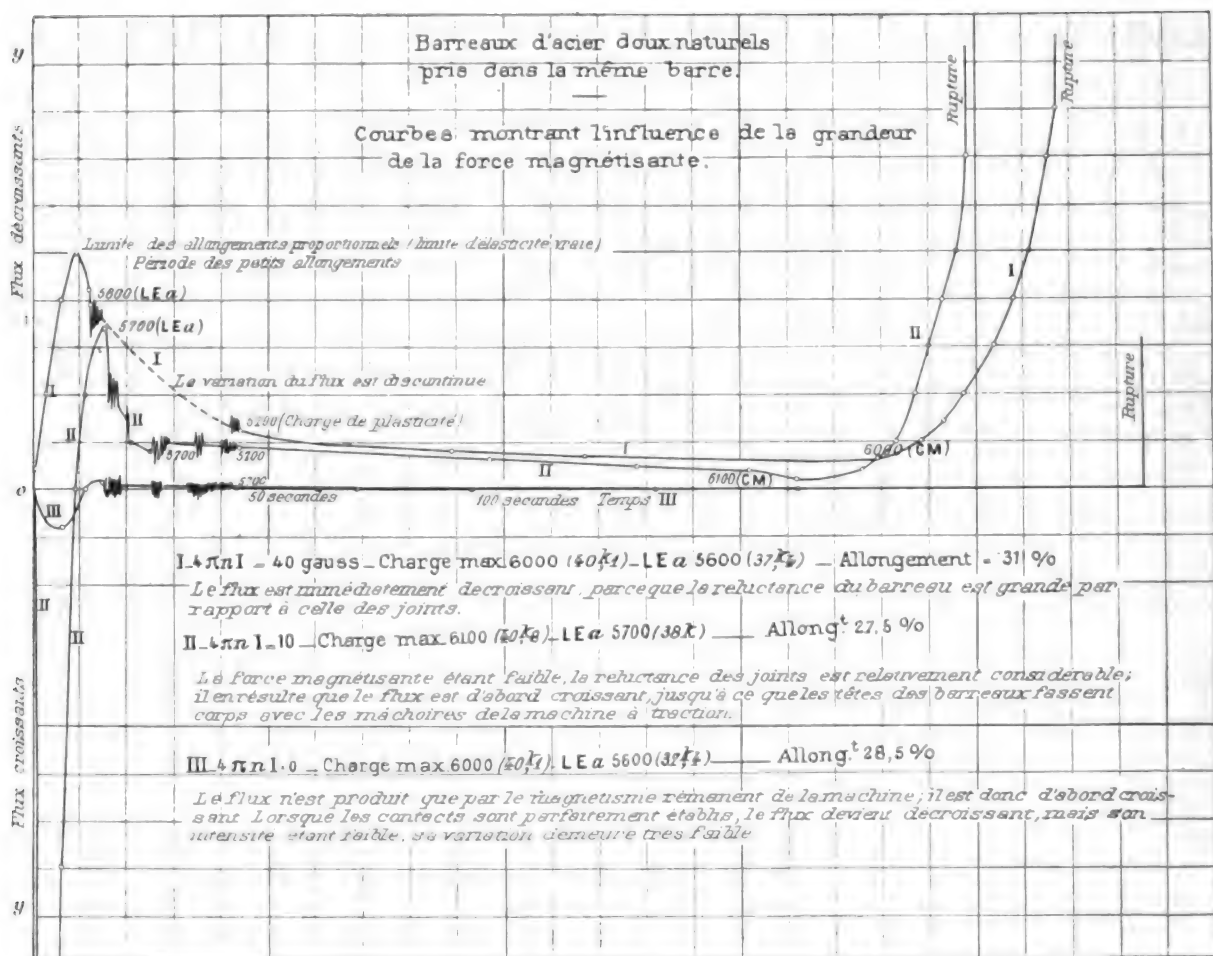 Barreaux d'acier doux naturels
pris dans la même barre.
Courbes montrant l'influence de la grandeur
de la force magnétisante.
y
Flux décroissants
Rupture
Rupture
Limite des allongements proportionnels (limite d'élasticité vraie)
Période des petits allongements
5600 (LEa)
5700 (LEa)
I
I
I
II
La variation du flux est discontinue
5200 (Charge de plasticité)
II
II
5700
5100
II
6000 (CM)
6100 (CM)
Rupture
o
III
50 secondes
100 secondes Temps III
II
II
I_4πnI = 40 gauss_Charge max 6000 _LEa 5600 _ Allongement = 31 %
Le flux est immédiatement decroissant, parceque la reluctance du barreau est grande par
rapport à celle des joints.
II_4πn I=10 _ Charge max 6100 _LEa 5700 (38k) _ Allong.t 27,5 %
La force magnétisante étant faible, la reluctance des joints est relativement considérable;
il en résulte que le flux est d'abord croissant, jusqu'à ce que les têtes des barreaux fassent
corps avec les mâchoires de la machine à traction.
III_4πnI.0 _ Charge max 6000 _ LEa 5600 _ Allong.t 28,5 %
Le flux n'est produit que par le magnétisme rémanent de la machine; il est donc d'abord crois-
sant Lorsque les contacts sont parfaitement établis, le flux devient décroissant, mais son
intensité étant faible, sa variation demeure très faible
Flux croissants
y